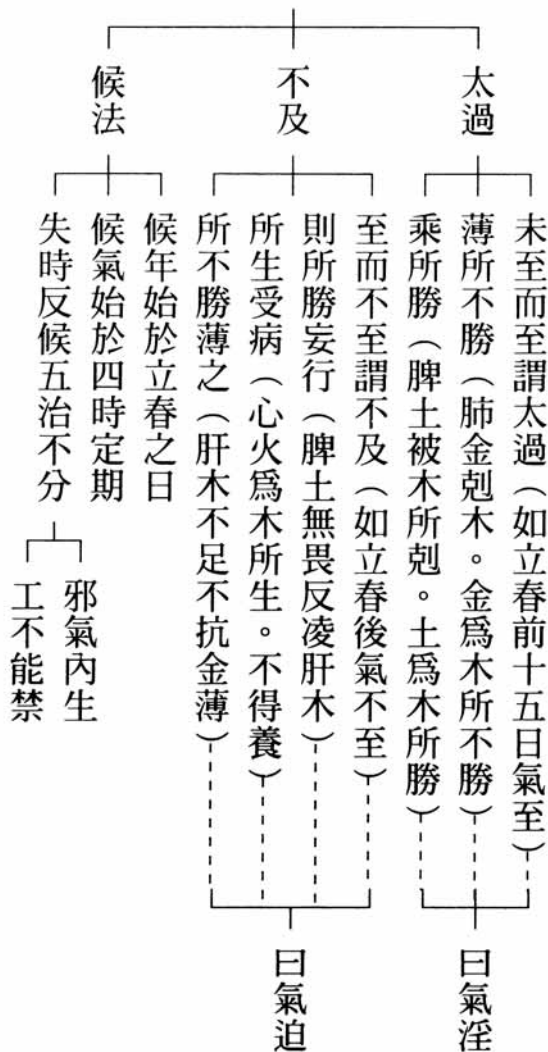 太過
未至而至謂太過（如立春前十五日氣至）
薄所不勝（肺金剋木。金爲木所不勝）
乘所勝（脾土被木所剋。土爲木所勝）
曰氣淫
不及
至而不至謂不及（如立春後氣不至）
則所勝妄行（脾土無畏反凌肝木）
所生受病（心火爲木所生。不得養）
所不勝薄之（肝木不足不抗金薄）
曰氣迫
候法
候年始於立春之日
候氣始於四時定期
失時反候五治不分
邪氣內生
工不能禁